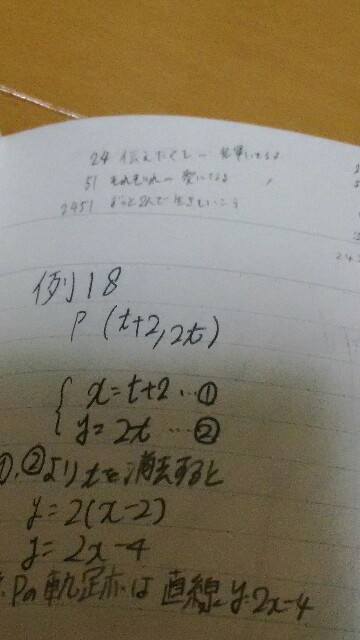 24 伝えたくて
51
2451 ずっと2人で生きていこう
例18
P(t+2,2t)
x=t+2…①
y=2t…②
①,②よりtを消去すると
y=2(x-2)
y=2x-4
Pの軌跡は直線y=2x-4